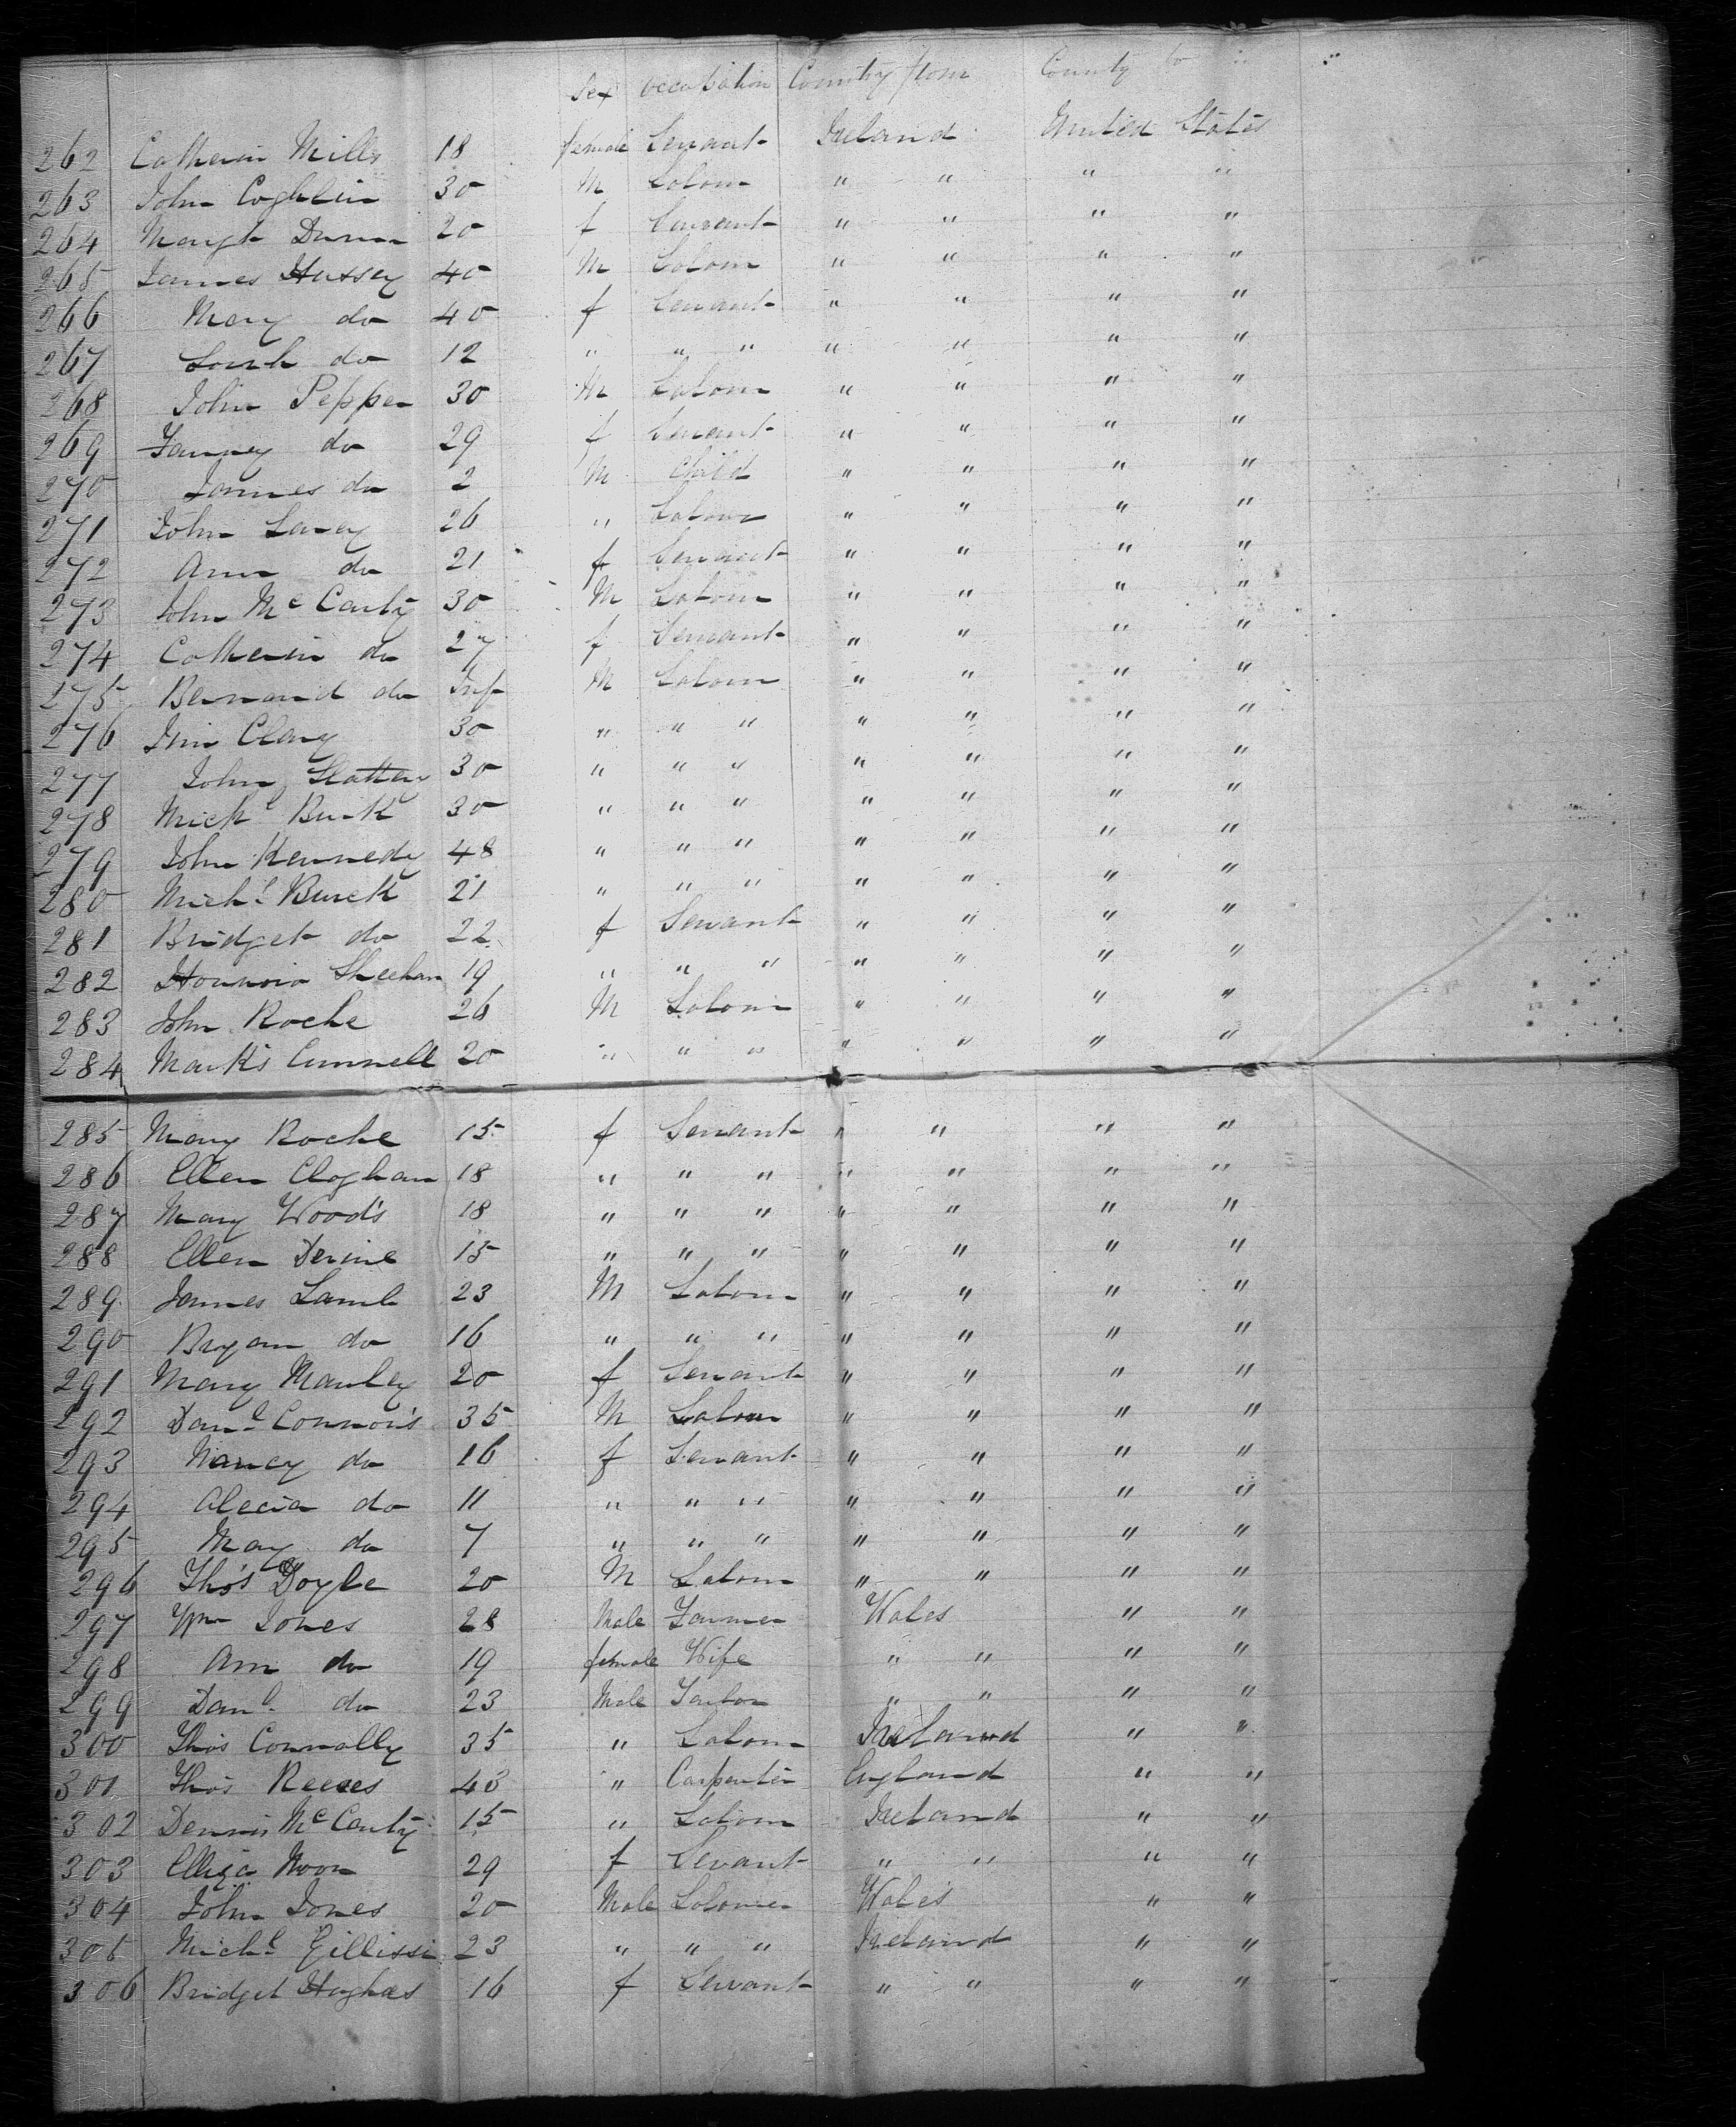 Sex occupation Country from County to "
262 Catherin Mills 18 female Servant Ireland United States
263 John Coghlin 30 M Labour " " " "
264 Margt Dunn 20 f Servant " " " "
265 James Hussey 40 M Labour " " " "
266 Mary do 40 f Servant " " " "
267 do 12 " " " " " " "
268 John Pepper 30 M Labour " " " "
269 Fanney do 29 f Servant " " " "
270 James do 2 M Child " " " "
271 John Lavey 26 " Labour " " " "
272 Ann do 21 f Servant " " " "
273 John McCarty 30 M Labour " " " "
274 Catherin do 27 f Servant " " " "
275 Bernard do Inf M Labour " " " "
276 Jim Clary 30 " " " " " " "
277 John Slattery 30 " " " " " " "
278 Michl Burk 30 " " " " " " "
279 John Kennedy 48 " " " " " " "
280 Michl Burck 21 " " " " " " "
281 Bridget do 22 f Servant " " " "
282 Honnora Sheehan 19 " " " " " " "
283 John Roche 26 M Labour " " " "
284 Mark's Cunnell 20 " " " " " " "
285 Mary Roche 15 f Servant " " " "
286 Ellen Cloghan 18 " " " " " " "
287 Mary Wood's 18 " " " " " " "
288 Ellen Devine 15 " " " " " " "
289 James Lamb 23 M Labour " " " "
290 Bryan do 16 " " " " " " "
291 Mary Manley 20 f Servant " " " "
292 Danl Connor's 35 M Labour " " " "
293 Nancy do 16 f Servant " " " "
294 Alecia do 11 " " " " " " "
295 May do 7 " " " " " " "
296 Tho's Doyle 20 M Labour " " " "
297 Wm Jones 28 Male Farmer Wales " "
298 Ann do 19 female Wife " " " "
299 Danl do 23 Male Tailor " " " "
300 Tho's Connolly 35 " Labour Ireland " "
301 Tho's Reeves 43 " Carpenter England " "
302 Dennis McCarty 15 " Labour Ireland " "
303 Elliza Moon 29 f Servant " " " "
304 John Jones 20 Male Labourer Wales " "
305 Michl Gillissi 23 " " " Ireland " "
306 Bridget Hughes 16 f Servant " " " "